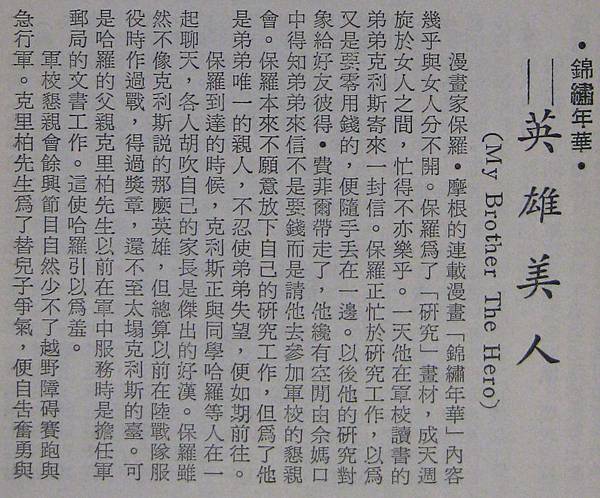 •錦繡年華•
——英雄美人
(My Brother The Hero)
漫畫家保羅•摩根的連載漫畫「錦繡年華」內容
幾乎與女人分不開。保羅爲了「研究」畫材,成天週
旋於女人之間,忙得不亦樂乎。一天他在軍校讀書的
弟弟克利斯寄來一封信。保羅正忙於研究工作,以爲
又是要零用錢的,便隨手丟在一邊。以後他的研究對
象給好友彼得•費菲爾帶走了,他纔有空閒由佘媽口
中得知弟弟來信不是要錢而是請他去參加軍校的懇親
會。保羅本來不願意放下自己的研究工作,但爲了他
是弟弟唯一的親人,不忍使弟弟失望,便如期前往。
保羅到達的時候,克利斯正與同學哈羅等人在一
起聊天,各人胡吹自己的家長是傑出的好漢。保羅雖
然不像克利斯說的那麼英雄,但總算以前在陸戰隊服
役時作過戰,得過獎章,還不至太塌克利斯的臺。可
是哈羅的父親克里柏先生以前在軍中服務時是擔任軍
郵局的文書工作。這使哈羅引以爲羞。
軍校懇親會餘興節目自然少不了越野障碍賽跑與
急行軍。克里柏先生爲了替兒子爭氣,便自告奮勇與